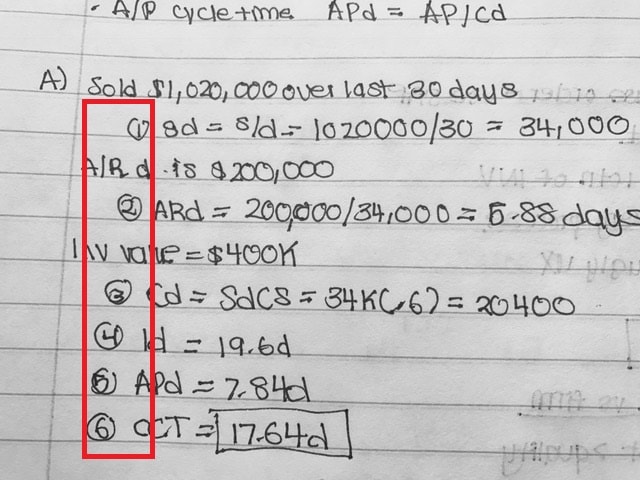 · A/P cycle time APd = AP/Cd
A) Sold $1,020,000 over last 30 days
① Sd = S/d = 1020000/30 = 34,000
A/R d is $200,000
② ARd = 200,000/34,000 = 5.88 days
INV value = $400K
③ Cd = SdCS = 34K(.6) = 20400
④ Id = 19.6d
⑤ APd = 7.84d
⑥ CCT = 17.64d